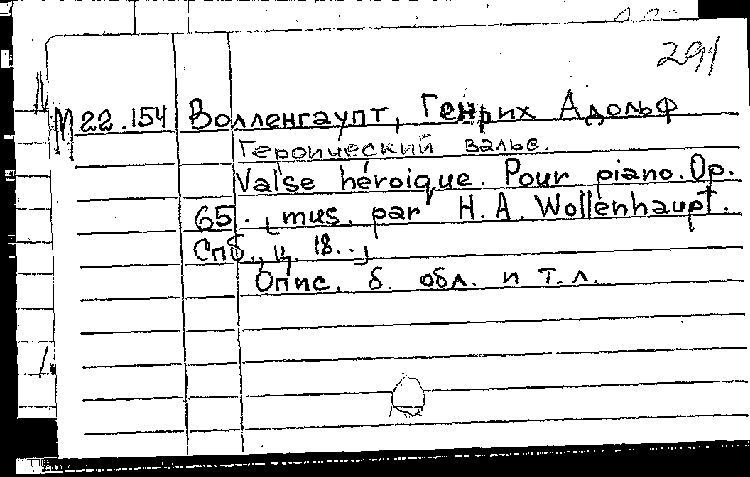 291
М 22.154 Волленгаупт, Генрих Адольф
Героический вальс.
Valse héroique. Pour piano. Op.
65. [mus. par H. A. Wollenhaupt.
Спб., ц. 18..]
Опис. б. обл. и т.л.